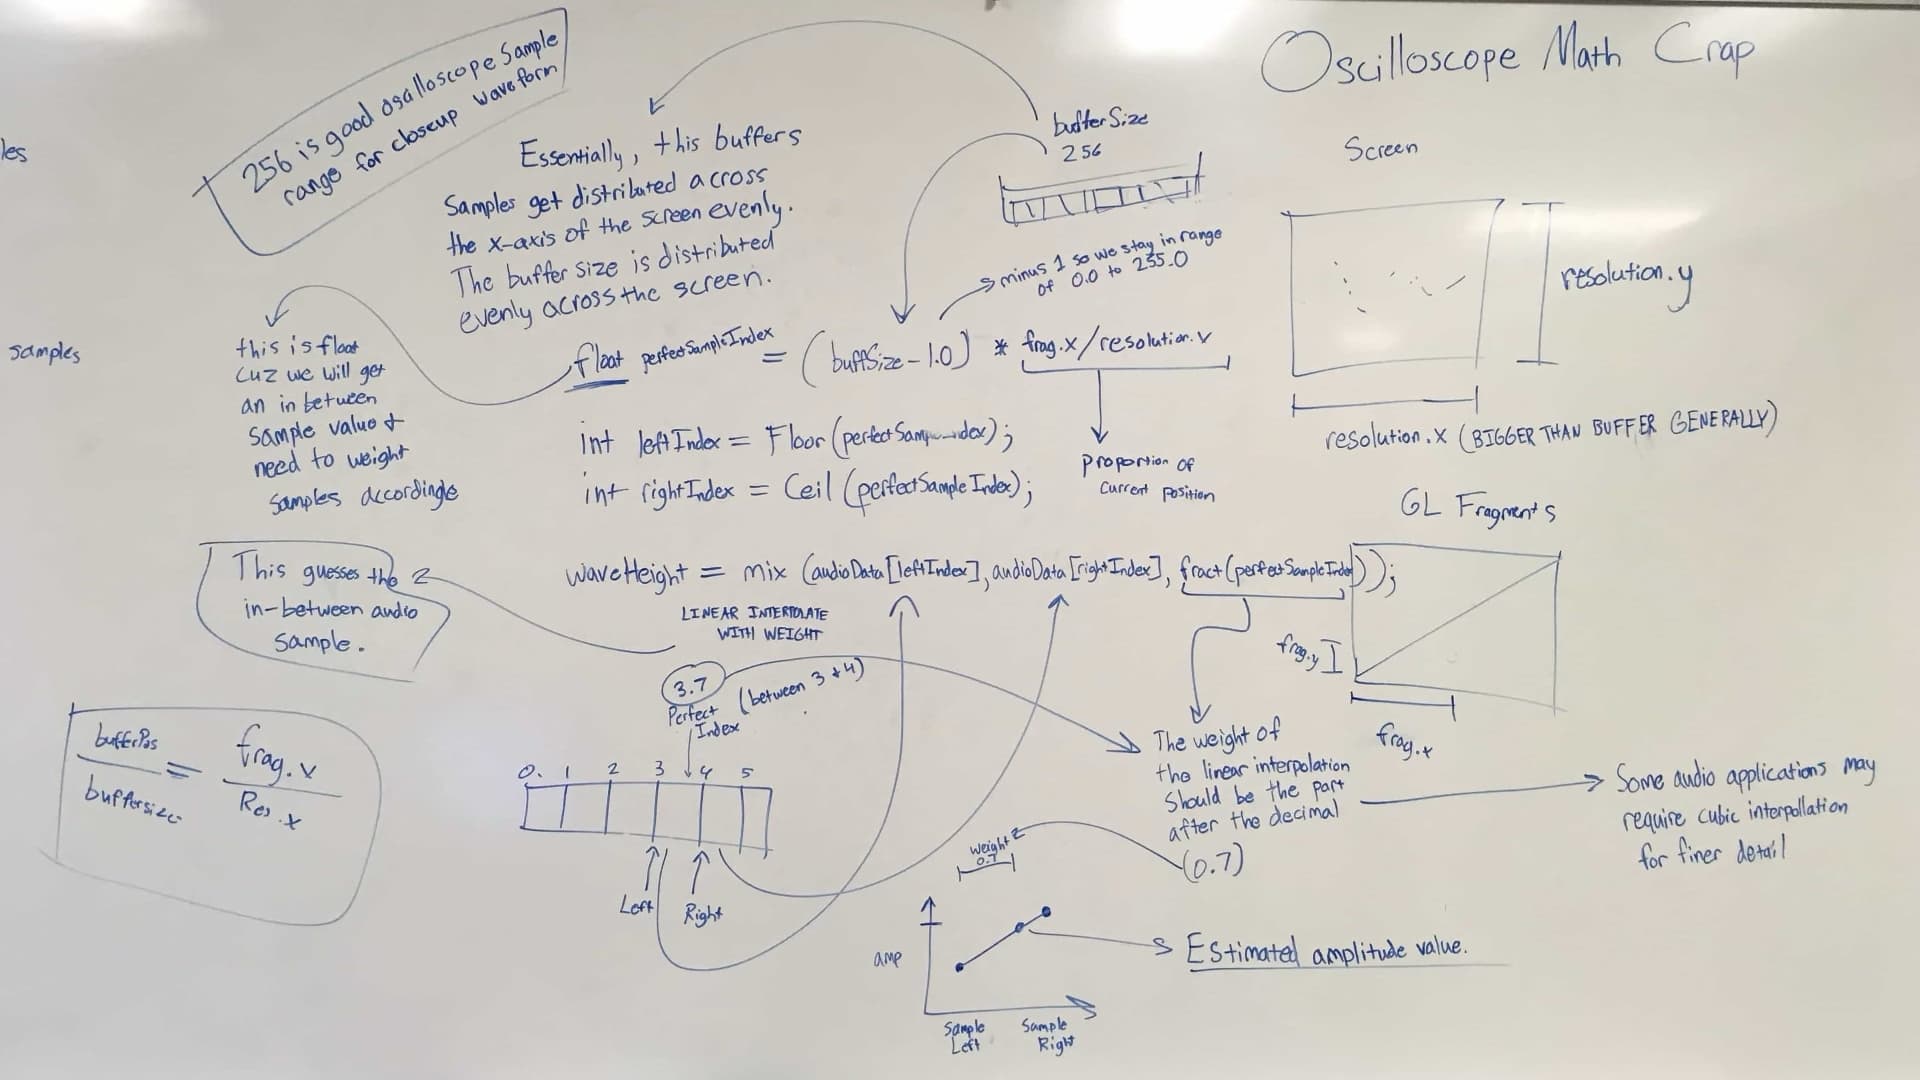 Oscilloscope Math Crap
256 is good osalloscope Sample
range for closeup waveform
les
samples
Essentially, this buffers
Samples get distributed across
the x-axis of the screen evenly.
The buffer size is distributed
evenly across the screen.
bufferSize
256
minus 1 so we stay in range
of 0.0 to 255.0
Screen
resolution.y
resolution.x (BIGGER THAN BUFFER GENERALLY)
this is float
cuz we will get
an in between
sample value &
need to weight
samples accordingle
float perfectSampleIndex = (buffSize - 1.0) * frag.x/resolution.x
int leftIndex = Floor(perfectSamp dex);
int rightIndex = Ceil (perfectSampleIndex);
Proportion of
current position
GL Fragments
frag.y
frag.x
This guesses the
in-between audio
sample.
waveHeight = mix (audioData[leftIndex], audioData[rightIndex], fract(perfectSampleIndex));
LINEAR INTERPOLATE
WITH WEIGHT
3.7
(between 3 & 4)
Perfect
Index
0. 1 2 3 4 5
Left
Right
bufferPos
buffersize
=
frag.x
Res.x
The weight of
the linear interpolation
should be the part
after the decimal
(0.7)
Some audio applications may
require cubic interpollation
for finer detail
weight
0.7
amp
Sample
Left
Sample
Right
Estimated amplitude value.